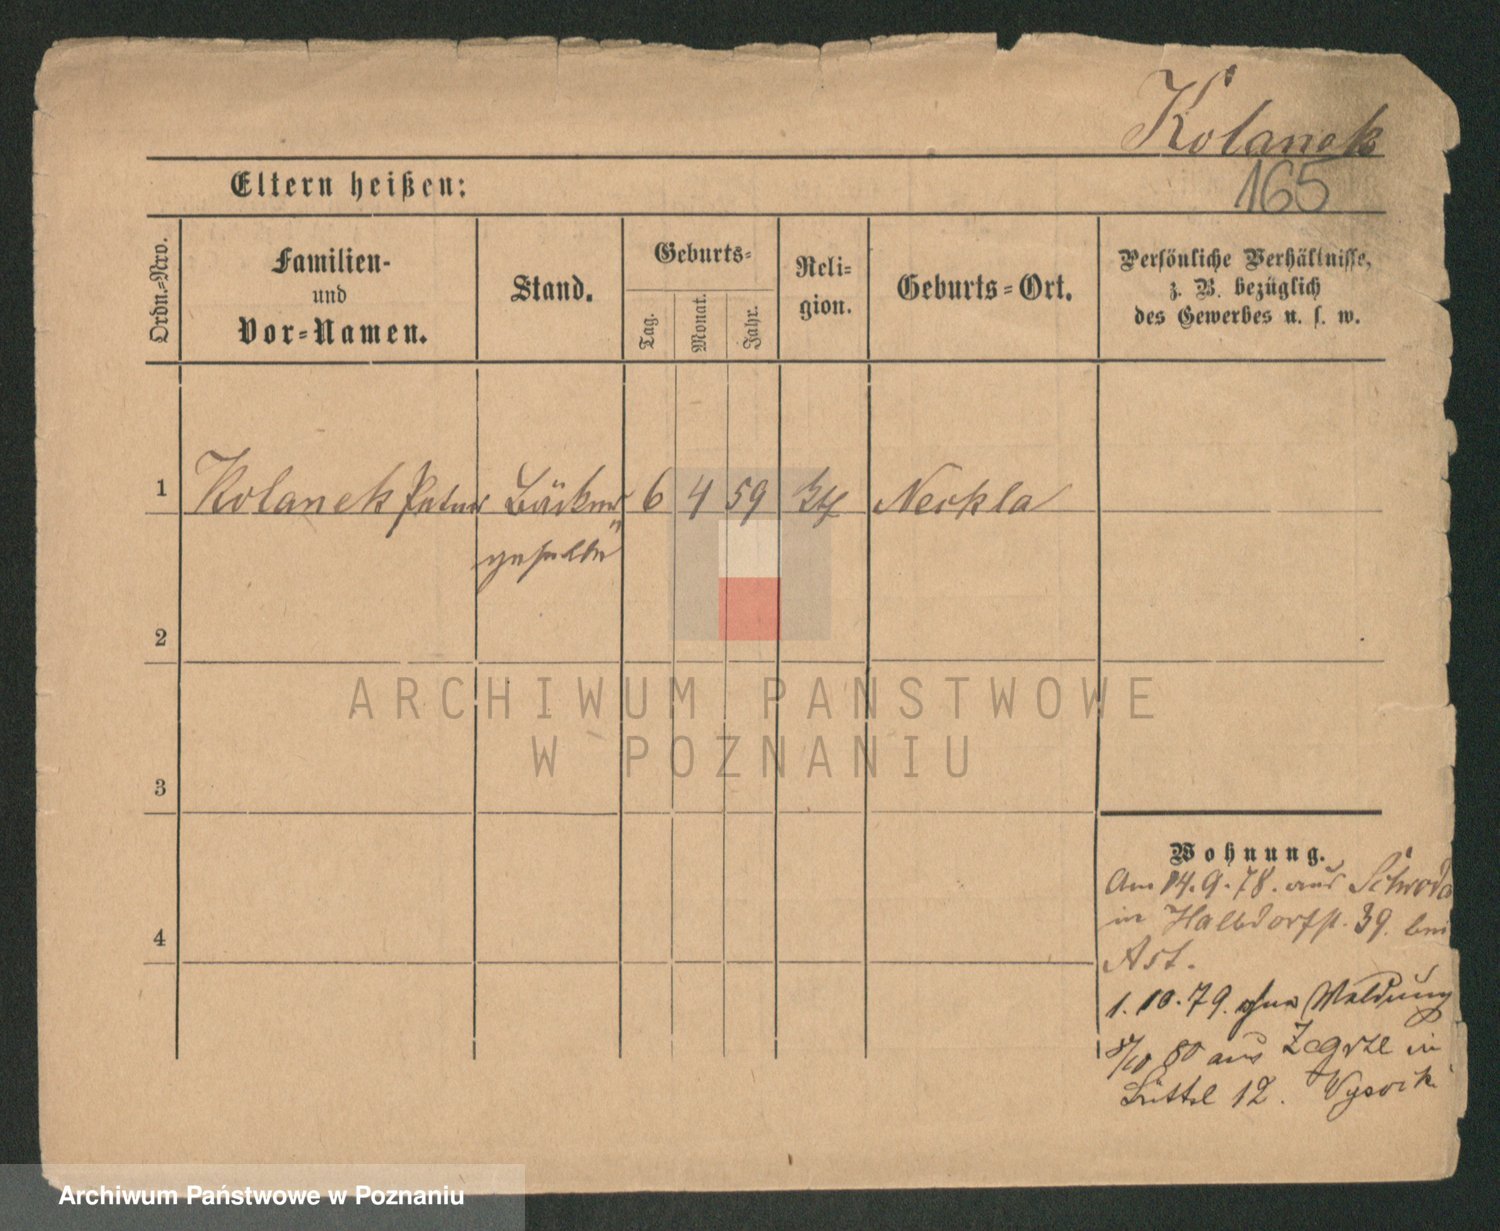 Kolanek
165
Eltern heißen:
Ordn.-Nro.
Familien-
und
Vor-Namen.
Stand.
Geburts-
Tag.
Monat.
Jahr.
Reli-
gion.
Geburts-Ort.
Persönliche Verhältnisse,
z. B. bezüglich
des Gewerbes u. s. w.
1 Kolanek Peter Bäcker 6 4 59 Neckla
geselle
2
3
4
Wohnung.
Am 14.9.78. aus Schroda
in Halbdorfst. 39. bei
Ast.
1.10.79. ohne Meldung
80 aus Zegrze in
Büttel 12. Wysocki
ARCHIWUM PAŃSTWOWE
W POZNANIU
Archiwum Państwowe w Poznaniu